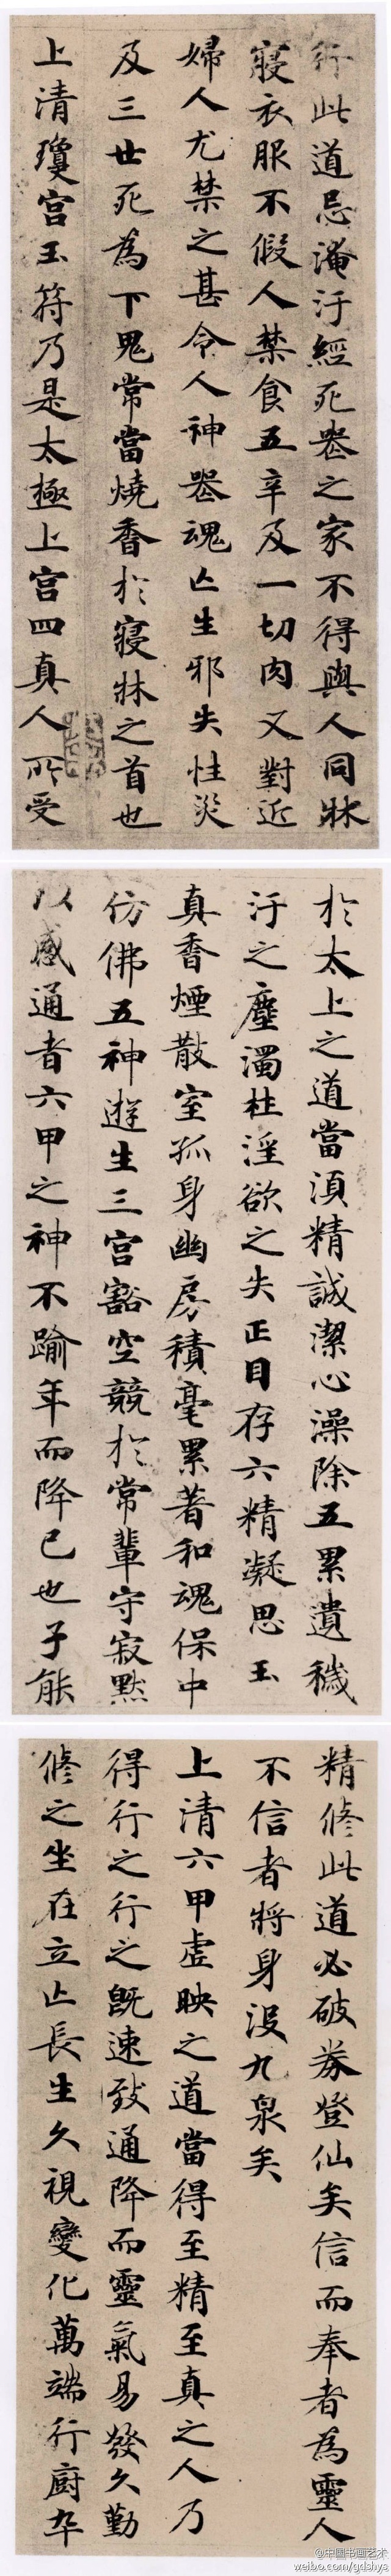 行此道忌淹汙經死器之家不得與人同牀
寢衣服不假人禁食五辛及一切肉又對近
婦人尤禁之甚令人神器魂亡生邪失性災
及三世死為下鬼常當燒香於寢牀之首也
上清瓊宮玉符乃是太極上宮四真人所受
於太上之道當須精誠潔心澡除五累遺穢
汙之塵濁杜淫欲之失正目存六精凝思玉
真香煙散室孤身幽房積毫累著和魂保中
仿佛五神遊生三宮豁空競於常輩守寂默
以感通者六甲之神不踰年而降已也子能
精修此道必破券登仙矣信而奉者為靈人
不信者將身沒九泉矣
上清六甲虛映之道當得至精至真之人乃
得行之行之既速致通降而靈氣易發久勤
修之坐在立亡長生久視變化萬端行廚卒
@中国书画艺术
weibo.com/gdshys